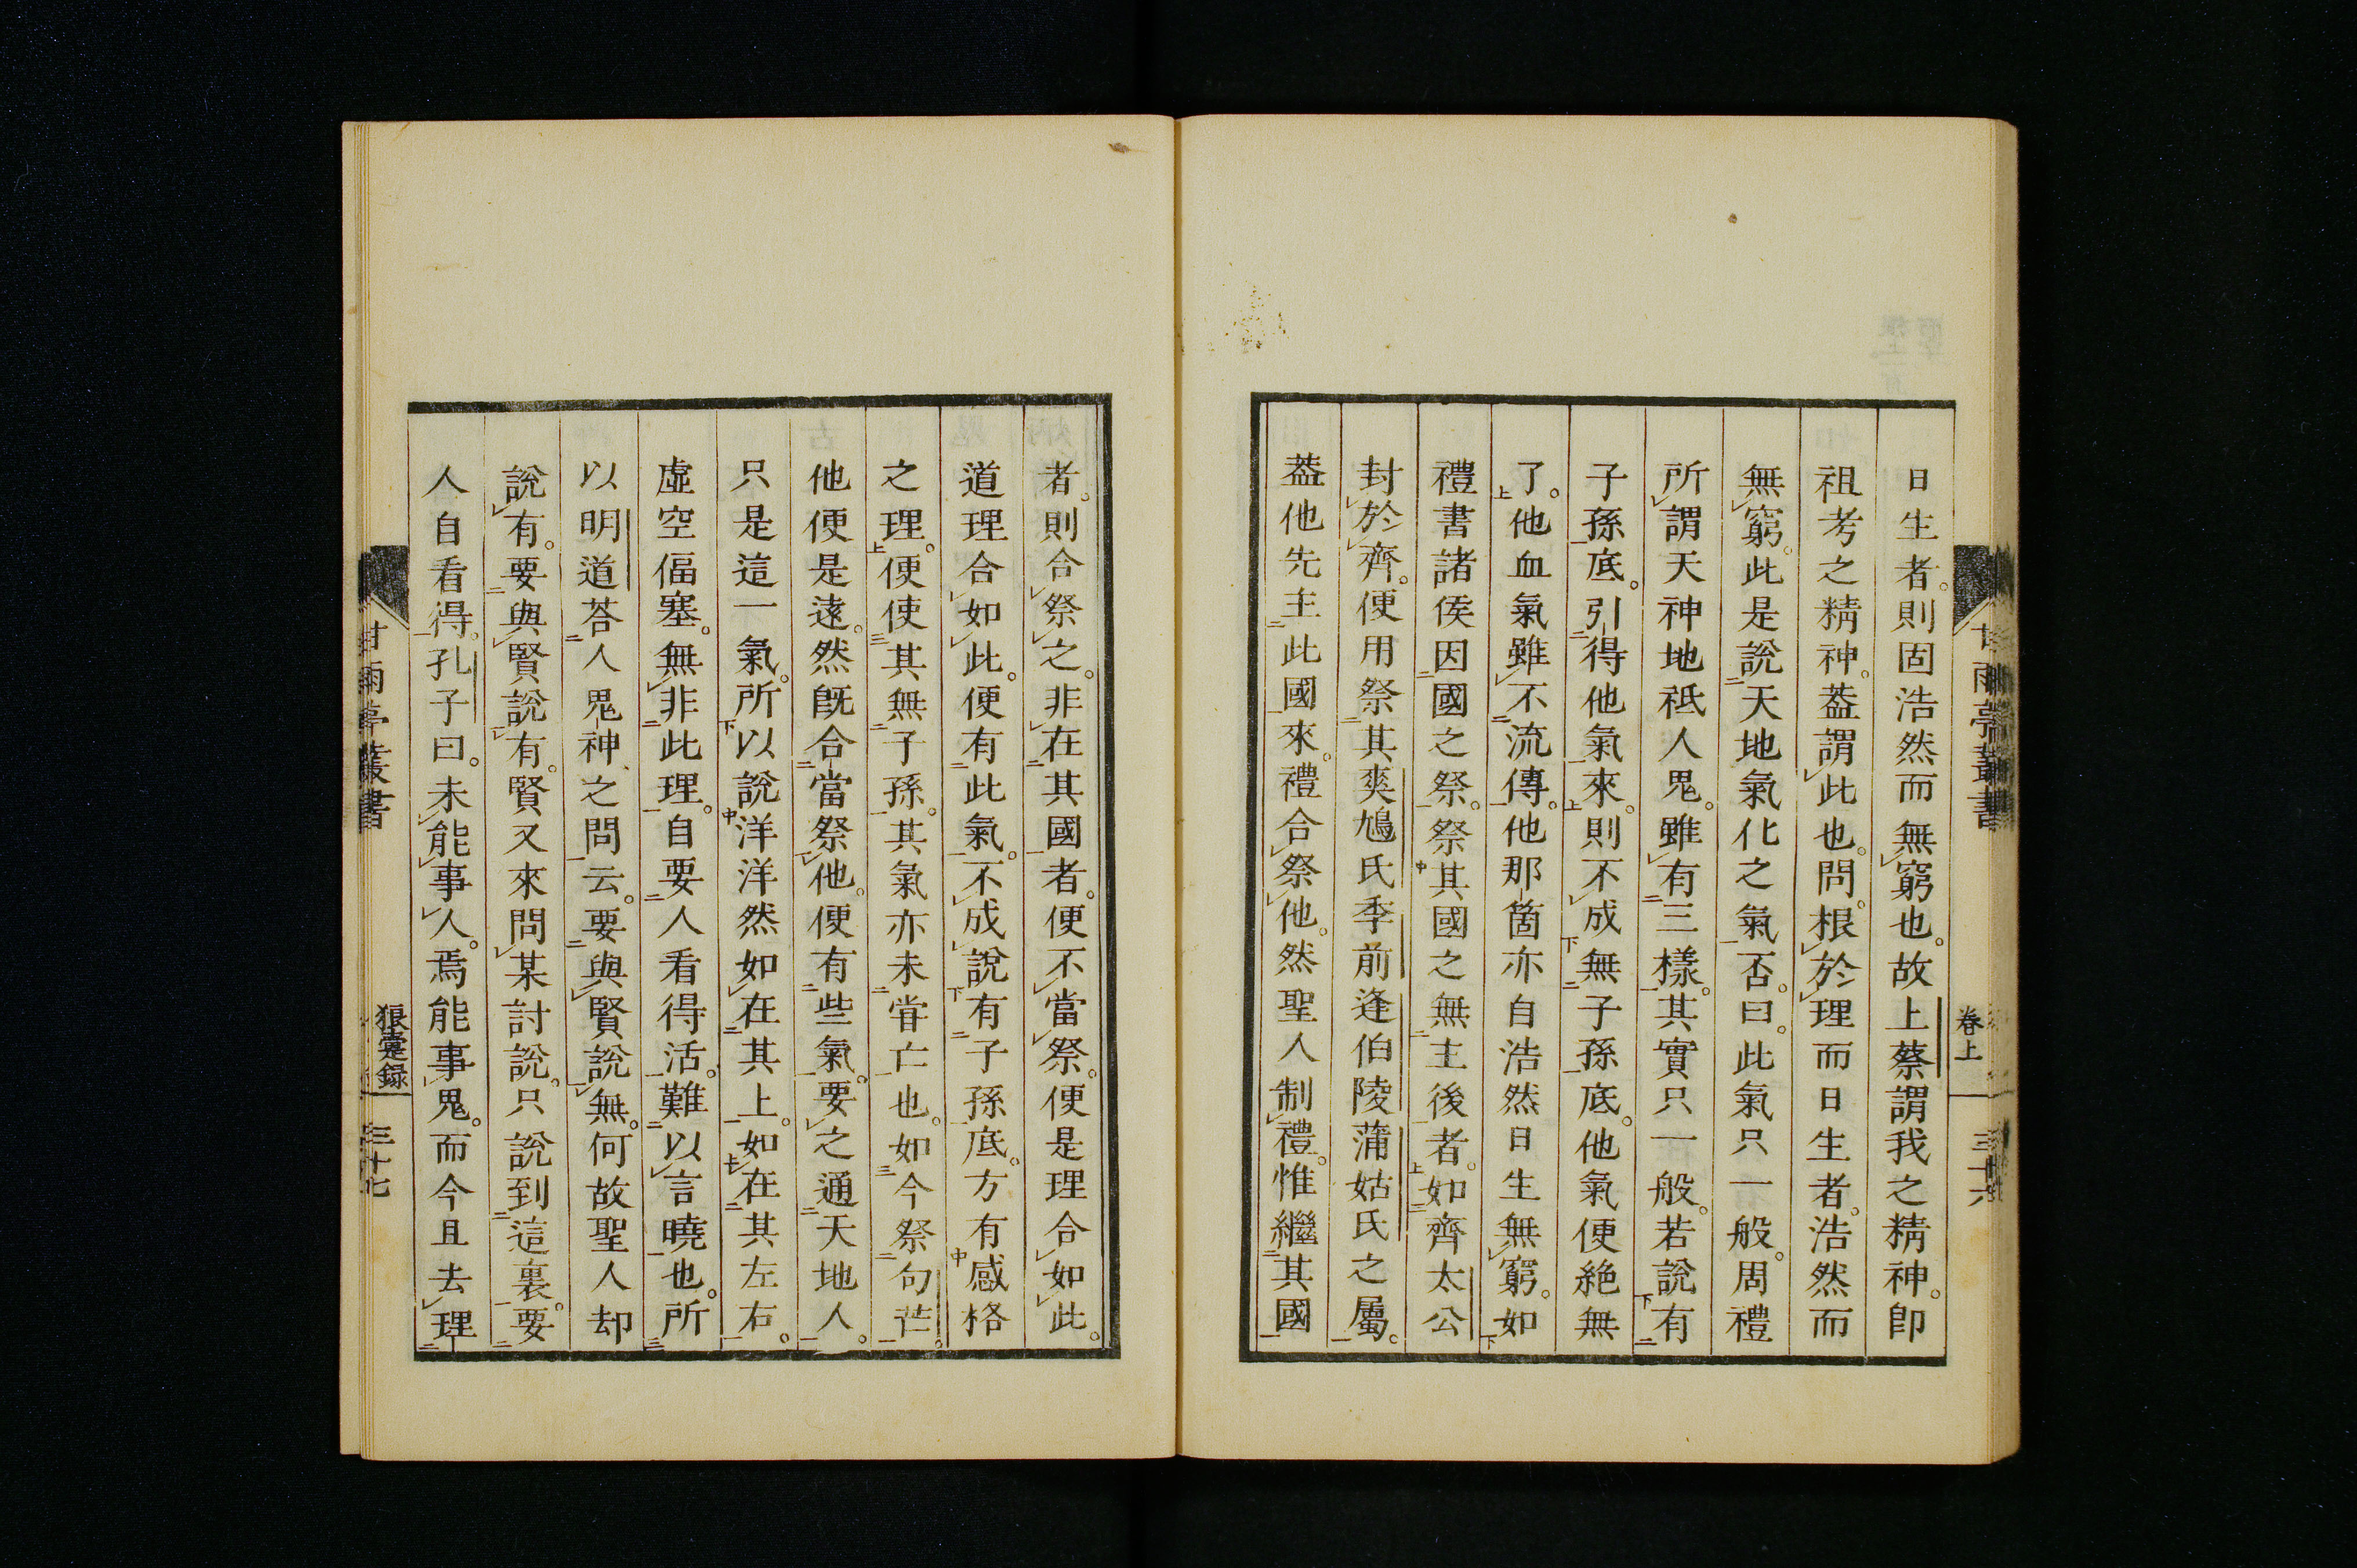 日生者。則固浩然而無窮也。故上蔡謂我之精神。卽
祖考之精神。葢謂此也。問。根於理而日生者。浩然而
無窮。此是說天地氣化之氣否。曰。此氣只一般。周禮
所謂天神地祇人鬼。雖有三樣。其實只一般。若說有
子孫底。引得他氣來。則不成無子孫底。他氣便絶無
了。他血氣雖不流傳。他那箇亦自浩然日生無窮。如
禮書諸侯因國之祭。祭其國之無主後者。如齊太公
封於齊。便用祭其爽鳩氏季萴逢伯陵蒲姑氏之屬。
葢他先主此國來。禮合祭他。然聖人制禮。惟繼其國
甘雨亭叢書 卷上 三十六
者。則合祭之。非在其國者。便不當祭。便是理合如此。
道理合如此。便有此氣。不成說有子孫底。方有感格
之理。便使其無子孫。其氣亦未嘗亡也。如今祭句芒。
他便是遠。然旣合當祭他。便有些氣。要之通天地人。
只是這一氣。所以說洋洋然如在其上。如在其左右。
虛空偪塞。無非此理。自要人看得活。難以言曉也。所
以明道荅人鬼神之問云。要與賢說無。何故聖人却
說有。要與賢說有。賢又來問某討說。只說到這裏。要
人自看得。孔子曰。未能事人。焉能事鬼。而今且去理
甘雨亭叢書 狼疐録 三十七